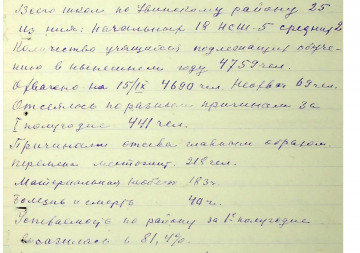 Всего школ по Увинскому району 25
Из них: начальных 18 НСШ-5 средних 2
Количество учащихся подлежащих обуче-
нию в нынешнем году 4759 чел.
Охвачено на 15/IX 4690 чел. Неохват 69 чел.
Отсеялось по разным причинам за
I полугодие 441 чел.
Причинами отсева главным образом.
перемена местожит. 218 чел.
Материальная необесп. 183 ч.
Болезнь и смерть 40 ч.
Успеваемость по району за 1е полугодие
выразилась в 81,4%.